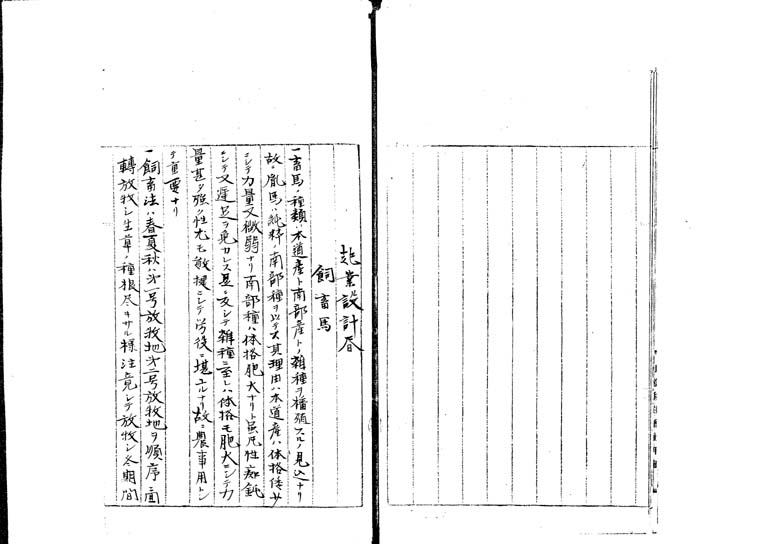 起業設計書
飼畜馬
一畜馬ノ種類ハ本道産ト南部産トノ雑種ヲ播殖スルノ見込ナリ
故ニ胤馬ハ純粋ノ南部種ヲ以テス其理由ハ本道産ハ体格倭少
ニシテ力量又微弱ナリ南部種ハ体格肥大ナリト虽凡性痴鈍
ニシテ又遅足ヲ免カレス是ニ反シテ雑種ニ至レハ体格モ肥大ニシテ力
量甚タ強ク性尤モ敏捷ニシテ労役ニ堪ユルナリ故ニ農事用トシ
テ重要ナリ
一飼畜法ハ春夏秋ハ第一号放牧地第二号放牧地ヲ順序
轉放牧シ生草ノ種根尽キサル様注意シテ放牧シ冬期間